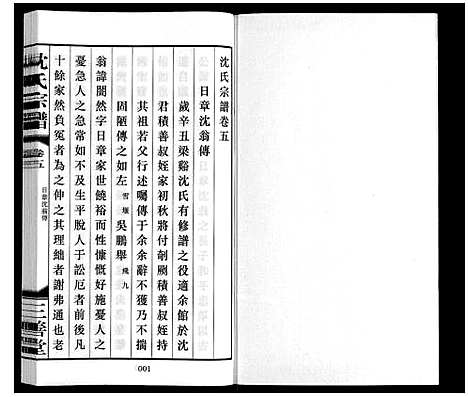 沈氏宗譜卷五
日章沈翁傳
歲辛丑梁谿沈氏有修譜之役適余館於沈
君積善叔姪家初秋將付剞劂積善叔姪持
其祖若父行述囑傳于余余辭不獲乃不揣
固陋傳之如左 雪堰 吳鵬舉 飛九
翁諱闇然字日章家世饒裕而性慷慨好施憂人之
憂急人之急常如不及生平脫人于訟厄者前後凡
十餘家然負冤者為之伸之其理絀者謝弗通也老
沈氏宗譜
卷五
日章沈翁傳
三善堂
001